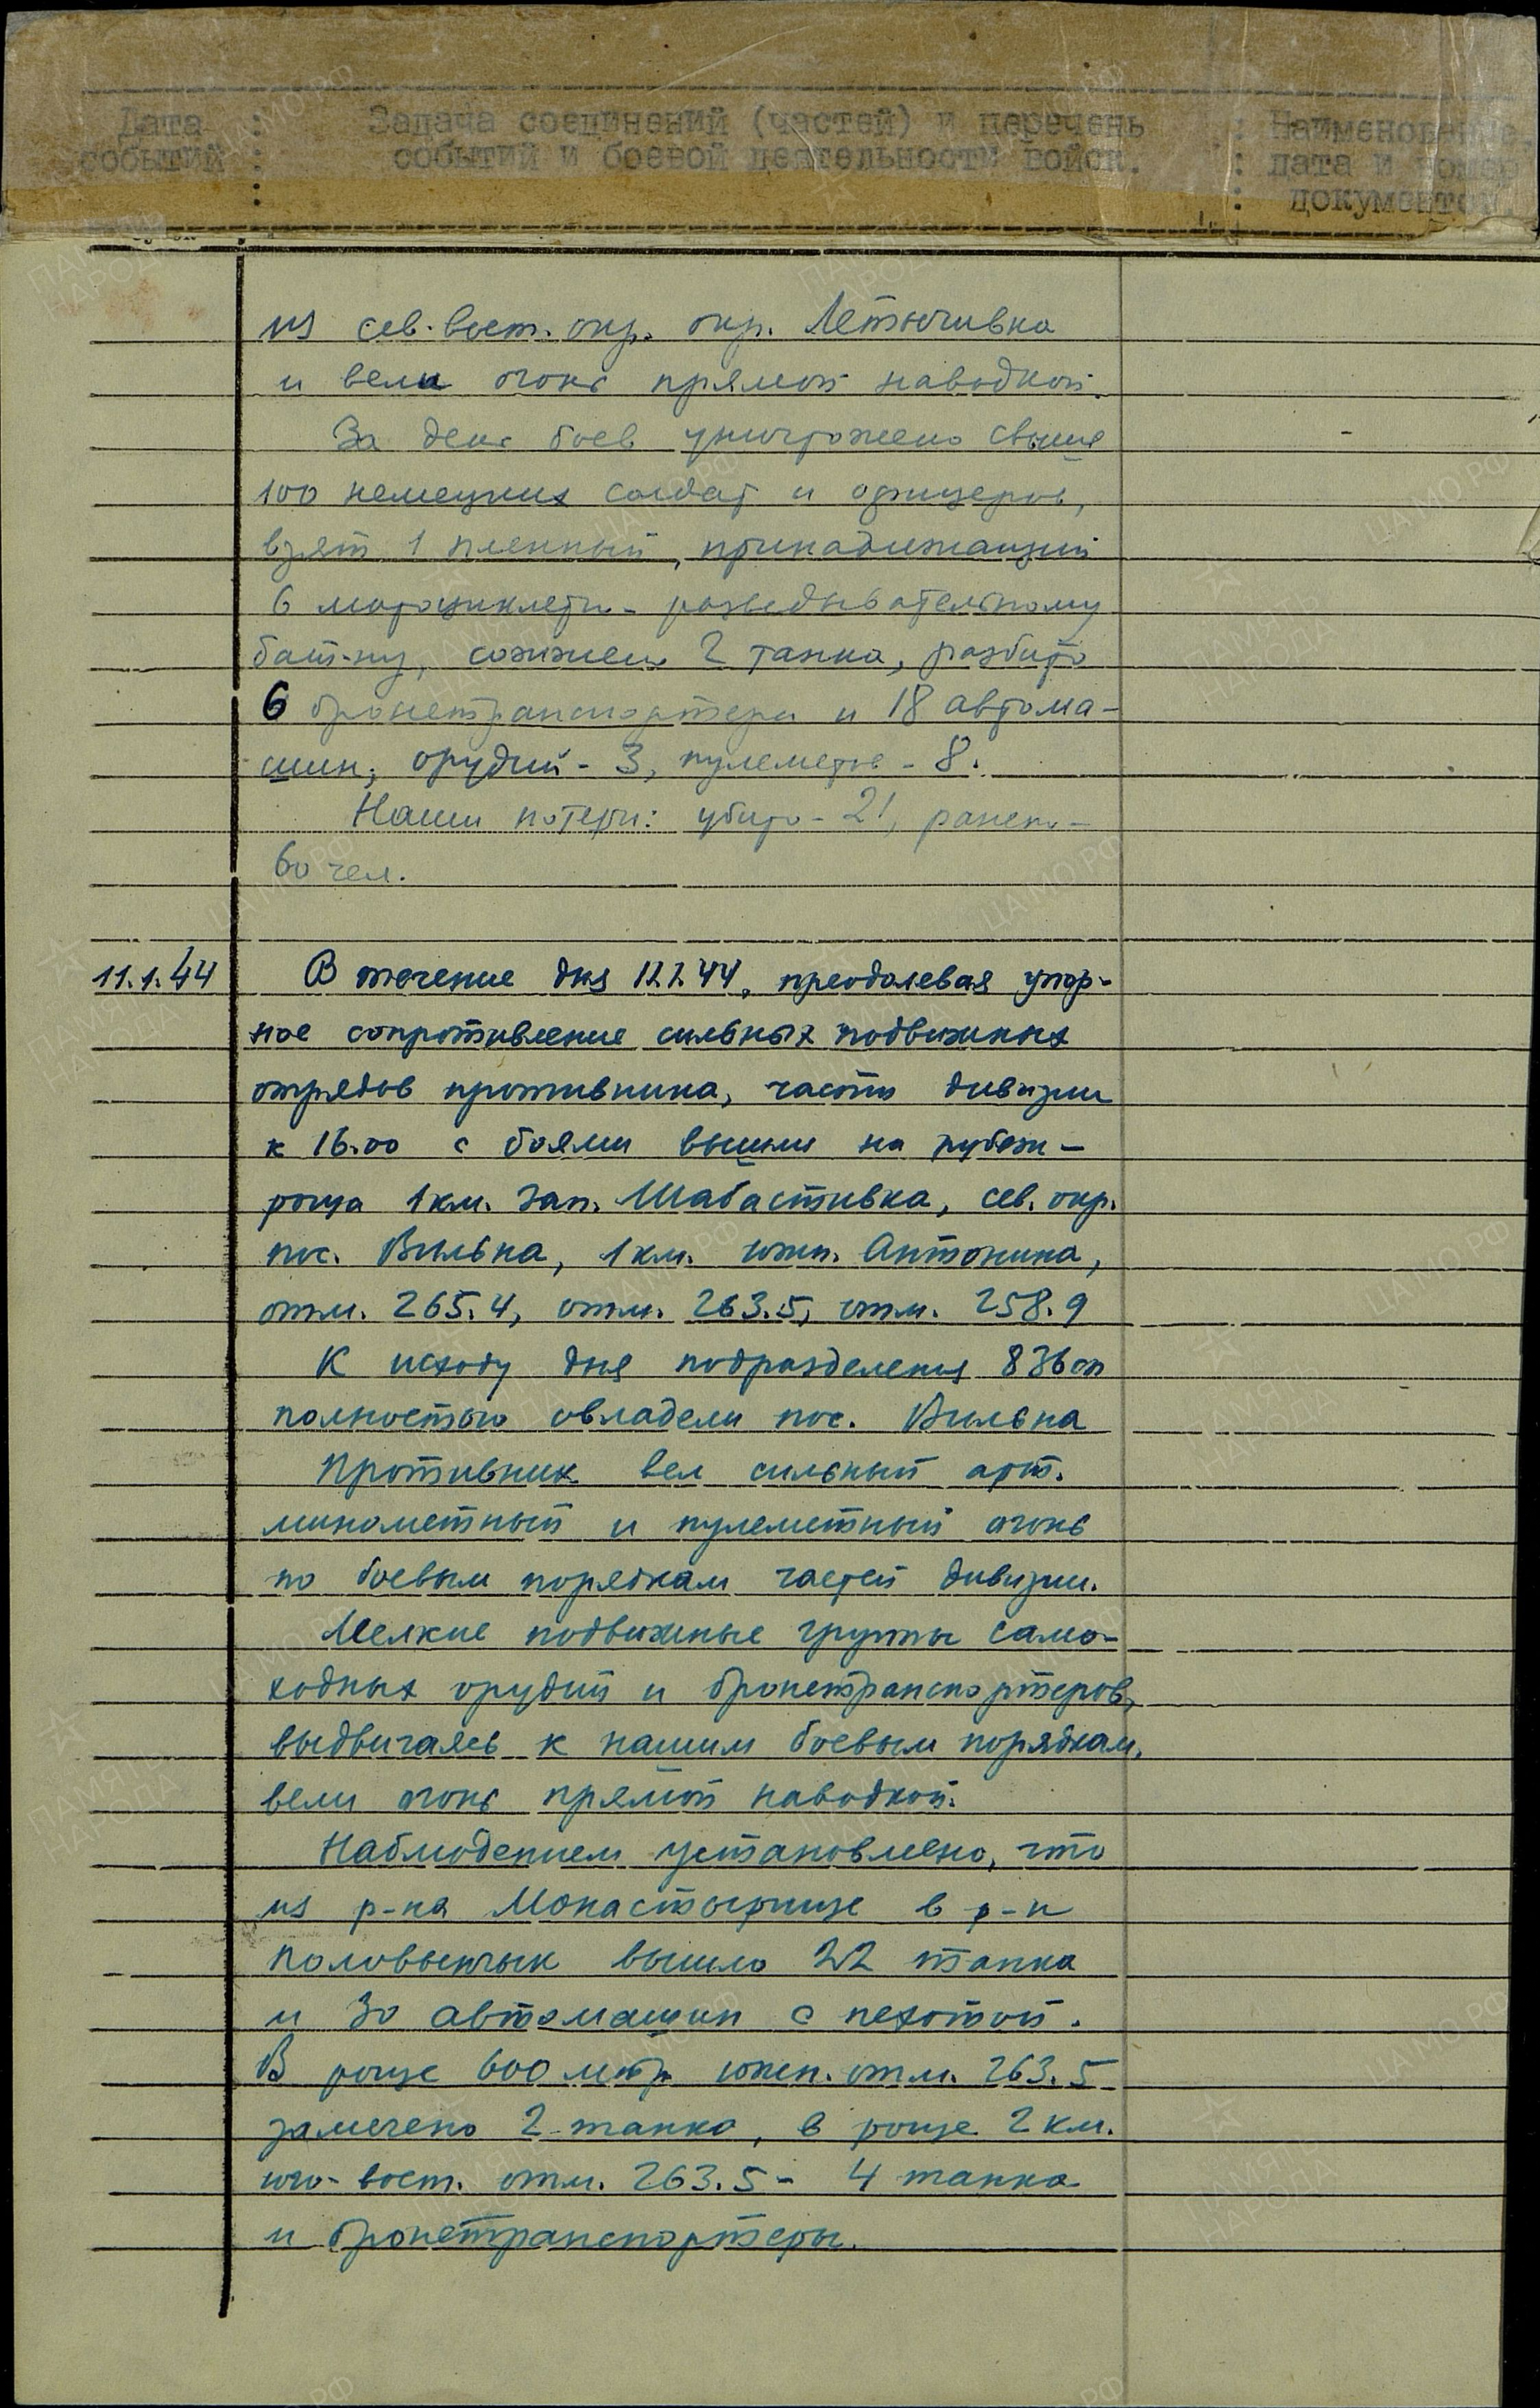 Дата : Задача соединений (частей) и перечень : Наименование,
событий : событий и боевой деятельности войск. : дата и номер
: : документов
из сев-вост. окр. окр. Летычивка
и вели огонь прямой наводкой.
За день боев уничтожено свыше
100 немецких солдат и офицеров,
взят 1 пленный, принадлежащий
6 мотоциклетн- разведывательному
бат-ну, сожжено 2 танка, разбито
6 бронетранспортера и 18 автома-
шин, орудий - 3, пулеметов - 8.
Наши потери: убито - 21, ранено -
60 чел.
11.1.44 В течение дня 11.1.44, преодолевая упор-
ное сопротивление сильных подвижных
отрядов противника, части дивизии
к 16.00 с боями вышли на рубеж -
роща 1 км. зап. Шабастивка, сев. окр.
пос. Вильна, 1 км. южн. Антонина,
отм. 265.4, отм. 263.5, отм. 258.9
К исходу дня подразделения 836 сп
полностью овладели пос. Вильна
Противник вел сильный арт.
минометный и пулеметный огонь
по боевым порядкам частей дивизии.
Мелкие подвижные группы само-
ходных орудий и бронетранспортеров,
выдвигаясь к нашим боевым порядкам,
вели огонь прямой наводкой.
Наблюдением установлено, что
из р-на Монастырище в р-н
Половынчык вышло 22 танка
и 30 автомашин с пехотой.
В роще 600 метр южн. отм. 263.5
замечено 2 танка, в роще 2 км.
юго-вост. отм. 263.5 - 4 танка
и бронетранспортеры.